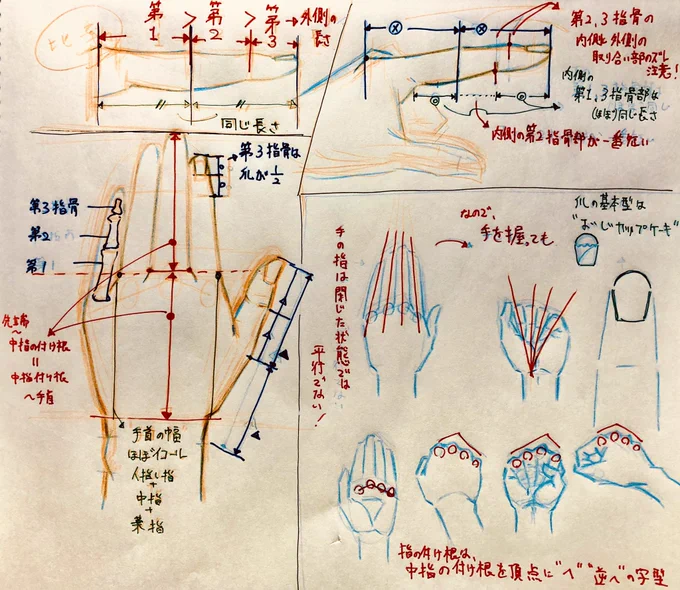 比率
第1 > 第2 > 第3
外側の
長さ
同じ長さ
第2,3指骨の
内側と外側の
取り合い部のズレ
注意!
内側の
第1,3指骨部は
(ほぼ)同じ長さ
内側の第2指骨部が一番短い
第3指骨は
爪が1/2
第3指骨
第2
第1
先端
〜
中指の付け根
=
中指付け根
〜手首
手首の幅
ほぼイコール
人指し指
+
中指
+
薬指
手の指は閉じた状態では
平行でない!
なので、
手を握っても
爪の基本型は
指の付け根は、
中指の付け根を頂点に"へ""逆へ"の字型